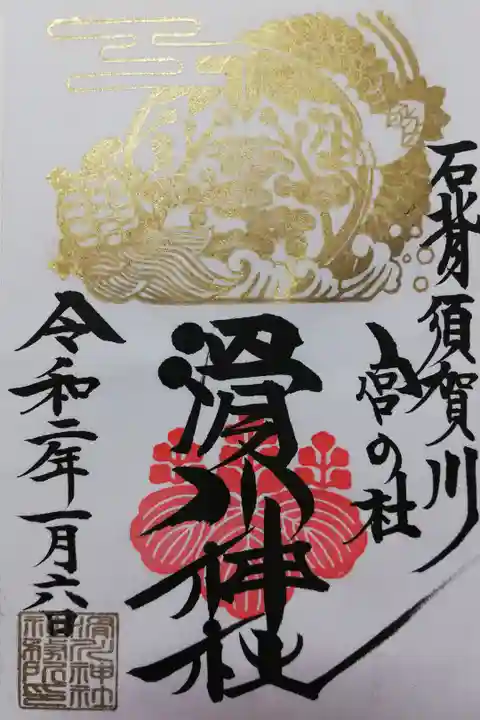 石背須賀川
宮の杜
滑川神社
令和二年一月六日
滑川神社
社務所印